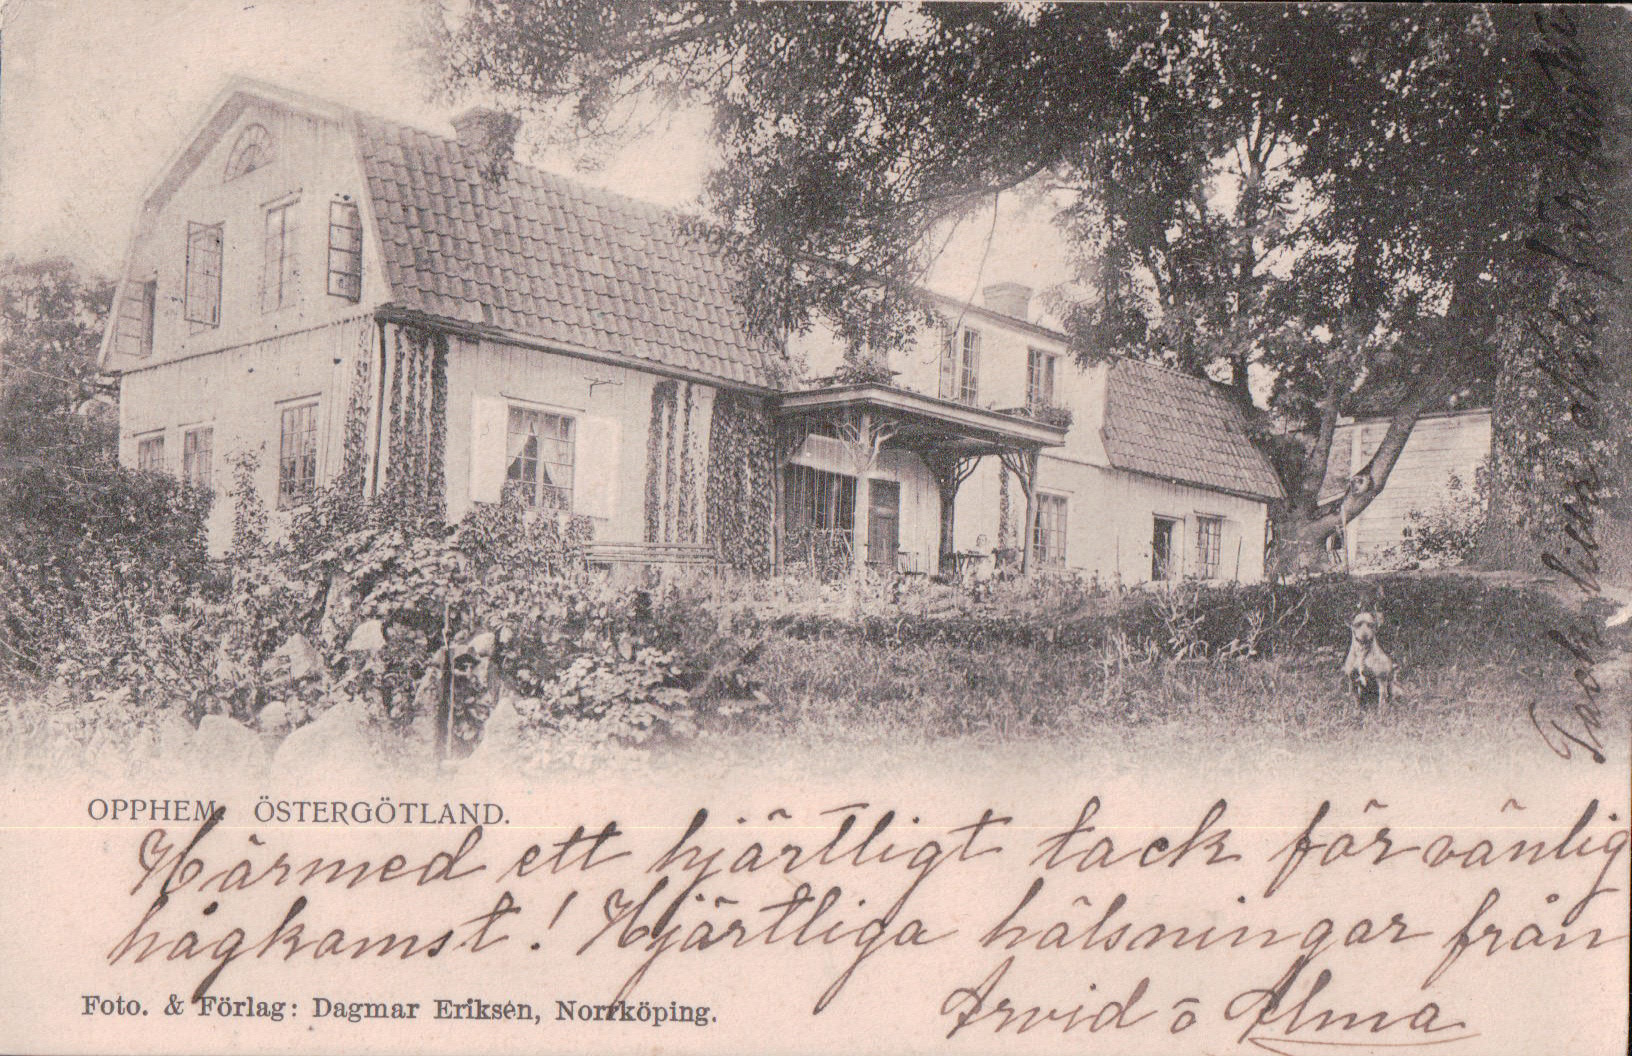 OPPHEM. ÖSTERGÖTLAND.
Härmed ett hjärtligt tack för vänlig
hågkomst! Hjärtliga hälsningar från
Arvid o Alma
Foto. & Förlag: Dagmar Eriksén, Norrköping.